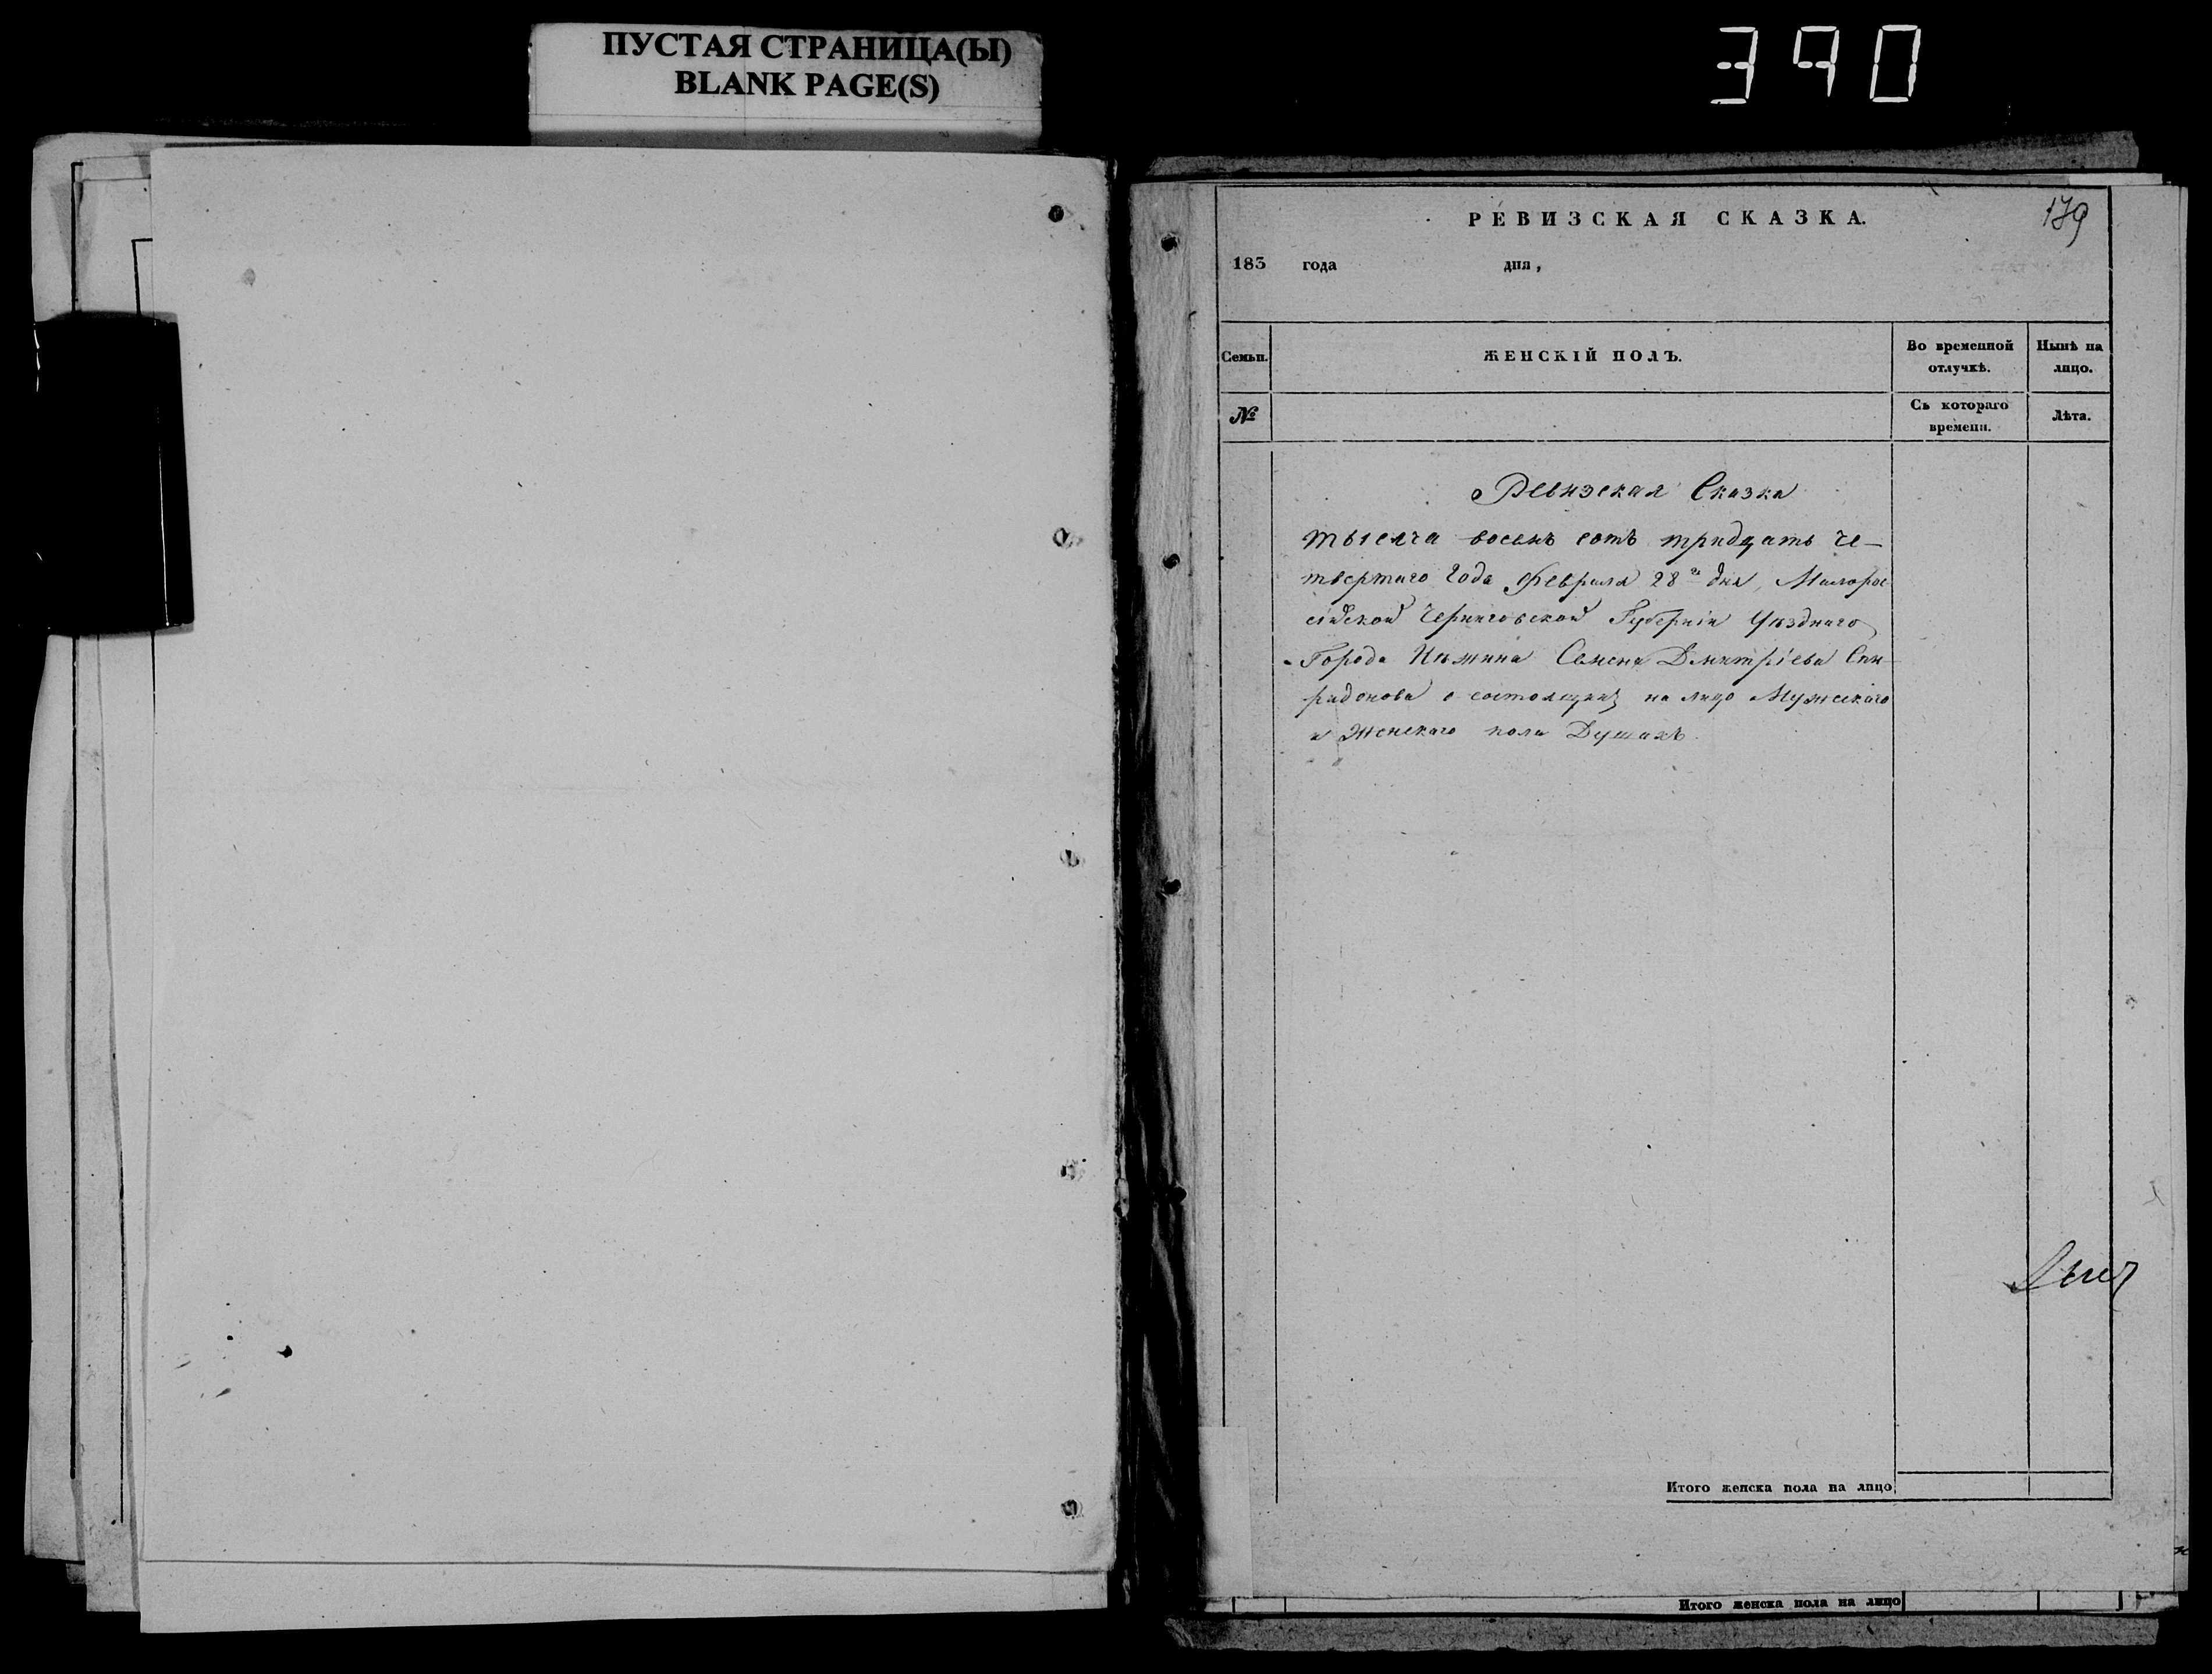 ПУСТАЯ СТРАНИЦА(Ы)
BLANK PAGE(S)
390
179
РЕВИЗСКАЯ СКАЗКА.
183 года дня,
Семьи. ЖЕНСКІЙ ПОЛЪ. Во временной отлучкѣ. Нынѣ на лицо.
№ Съ котораго времени. Лѣта.
Ревизская Сказка
тысяча восемь сотъ тридцать че-
твертаго Года Февраля 28го дня, Малорос
сійской Черниговской Губерніи Уѣзднаго
Города Нѣжина Семена Дмитріева Спи-
ридонова о состоящихъ на лицо Мужескаго
и Женскаго пола Душахъ.
Итого женска пола на лицо
Итого женска пола на лицо